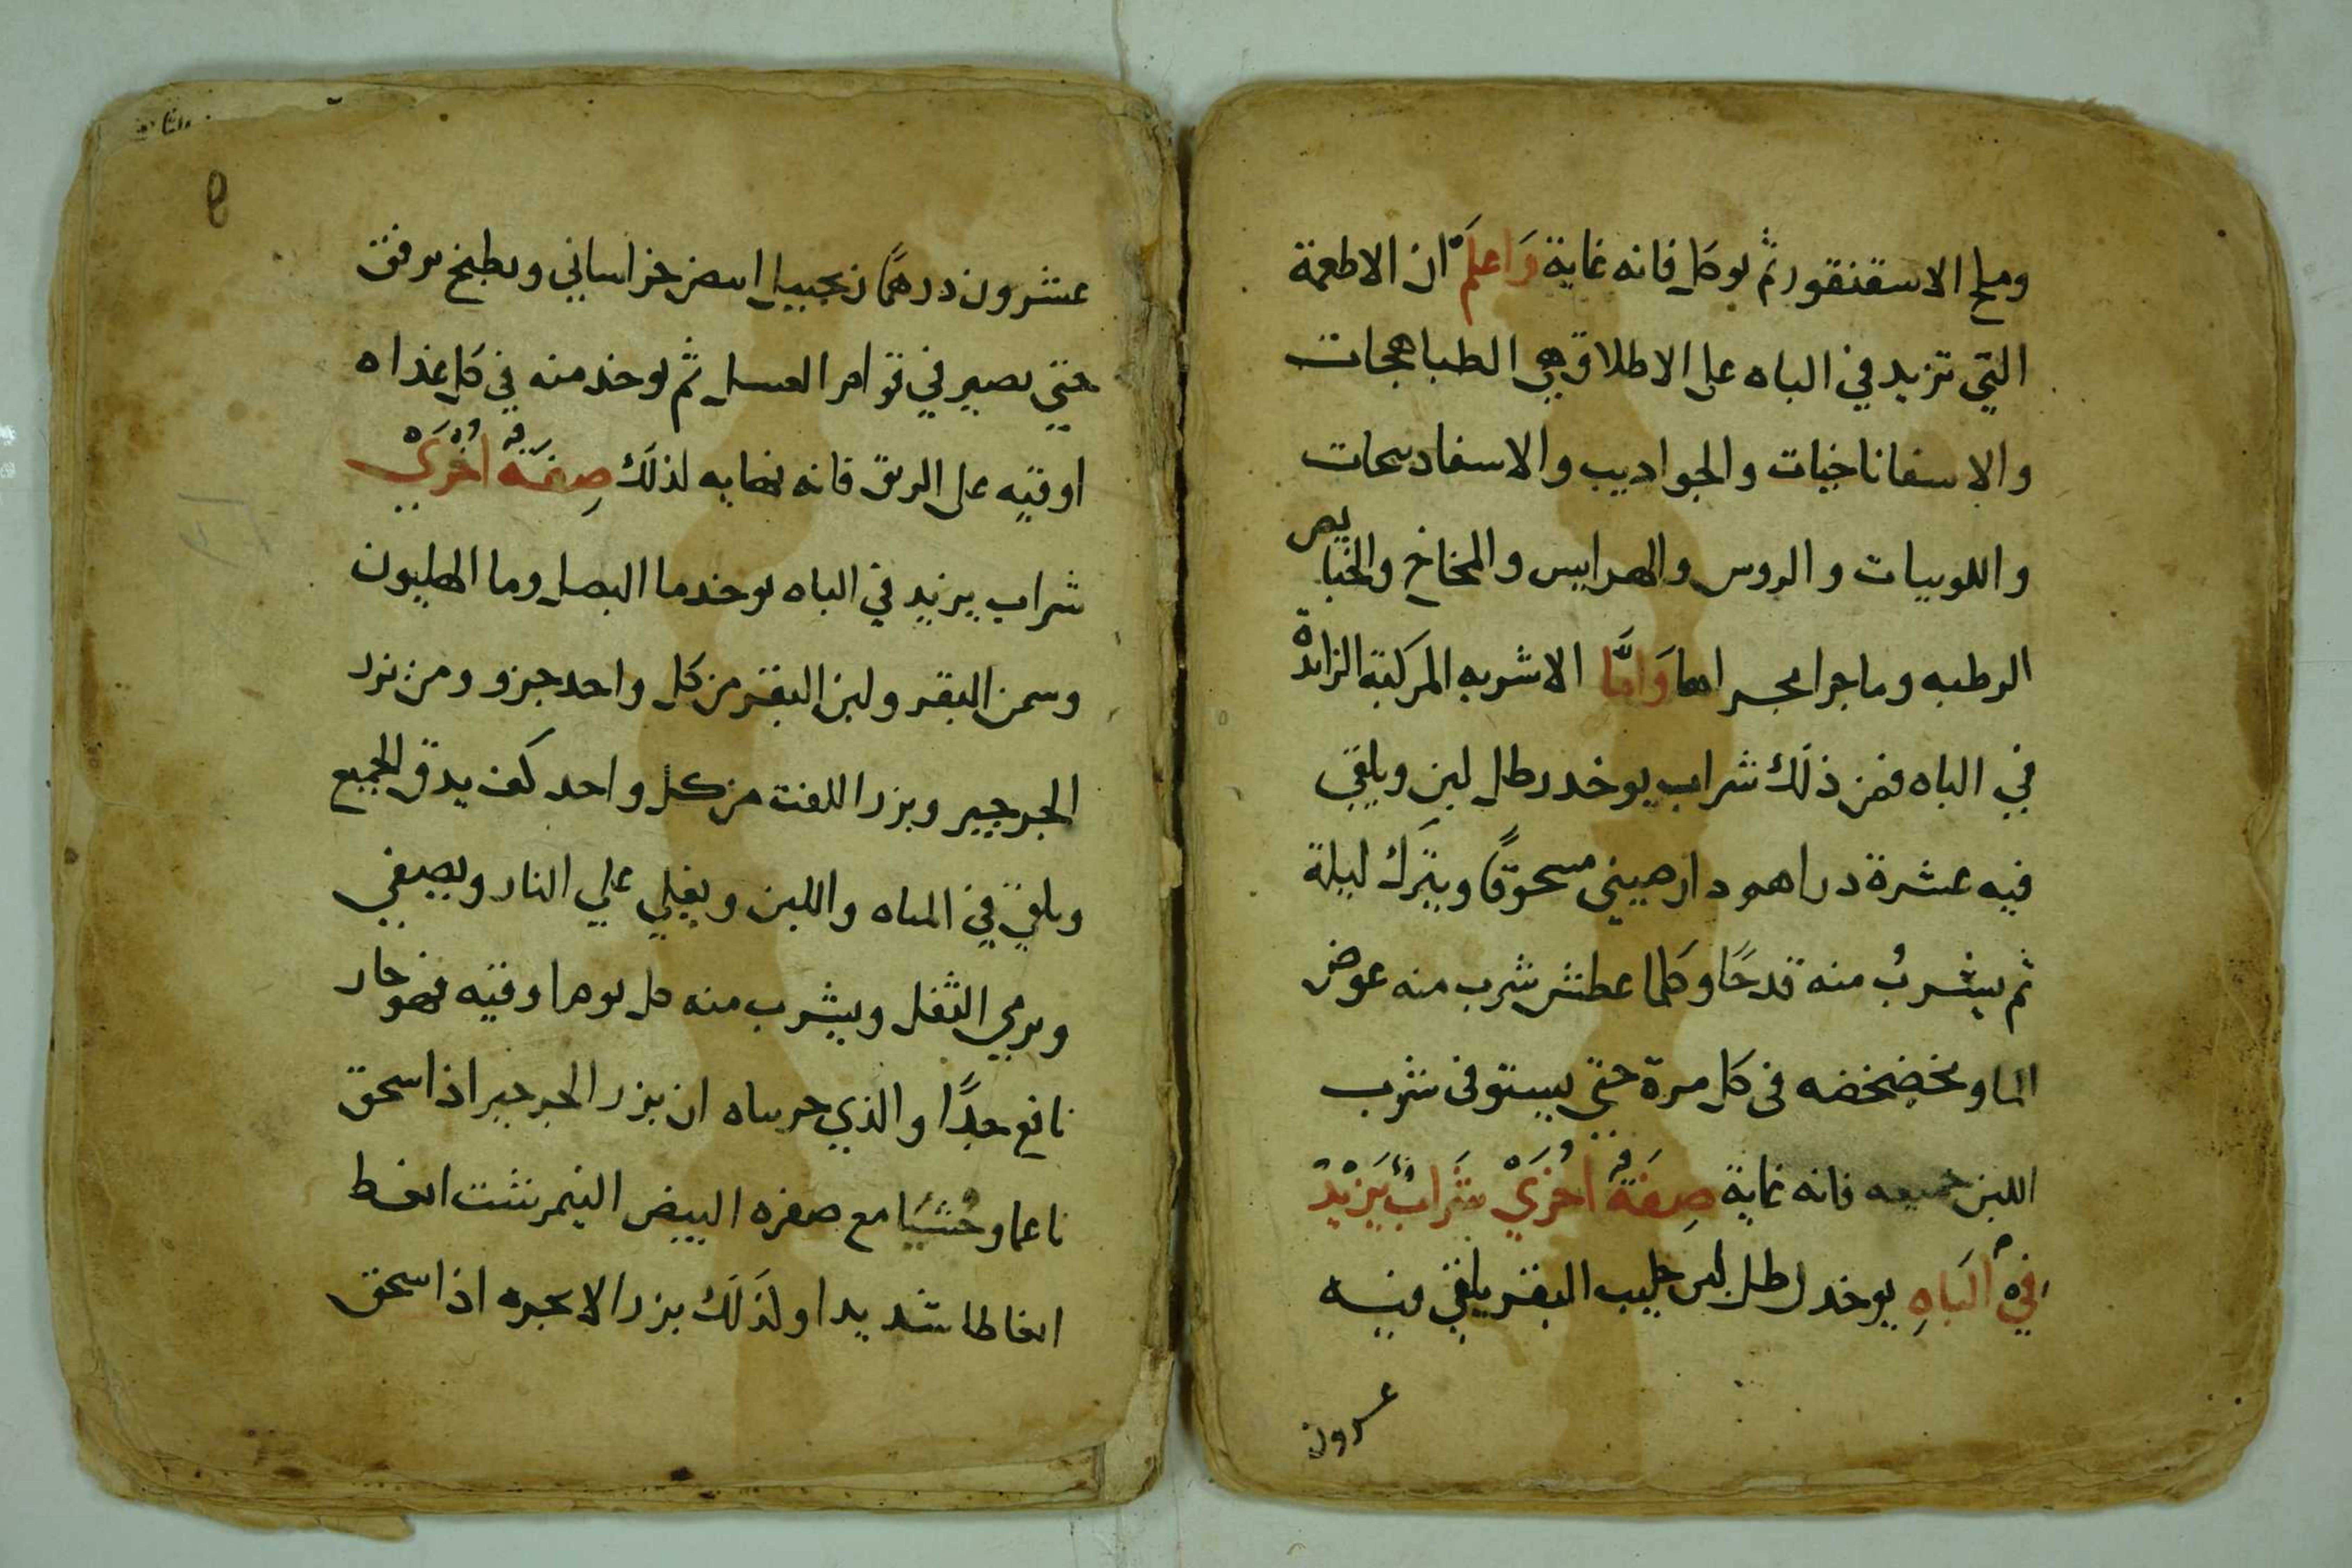 وملح الاسقنقور ثم يوكل فانه غاية وَاعلَمْ ان الاطعمة
التي تزيد في الباه على الاطلاق هي الطباهجات
والاسفاناخيات والجواديب والاسفادبجات
واللوبيات والروس والهرايس والمخاخ والخبايص
الرطبه وما جرا مجراها وَامَّا الاشربه المركبة الزايدة
في الباه فمن ذلك شراب يوخد رطل لبن ويلقي
فيه عشرة دراهم دارصيني مسحوقًا ويترك ليلة
ثم يشربُ منه قدحًا وكلما عطش شرب منه عوض
الما ويخضخضه فى كل مرة حتي يستوفى شرب
اللبن جميعه فانه غاية صِفَةٌ اُخرَيْ شَرَابٌ يَزِيْدُ
فيْ البَاهِ يوخد رطل لبن حليب البقر يلقي فيه
عسرون
9
عشرون درهمًا زنجبيل ابيض خراساني ويطبخ برفق
حتي يصير في قوام العسل ثم يوخد منه في كل غداه
اوقيه على الريق فانه نهايه لذلك صِفَةٌ اُخرَي
شراب يزيد في الباه يوخد ما البصل وما الهليون
وسمن البقر ولبن البقر من كل واحد جزو ومن بزر
الجرجير وبزر اللفت من كل واحد كف يدق الجميع
ويلقي في المياه واللبن ويغلي علي النار ويصفي
ويرمي الثفل ويشرب منه كل يوم اوقيه فهو حار
نافع جدًا والذي جربناه ان بزر الجرجير اذا سحق
ناعما وحُشيَا مع صفره البيض النيمرشت انعظ
انعاظا شديدا ولذلك بزر الانجره اذا سحق